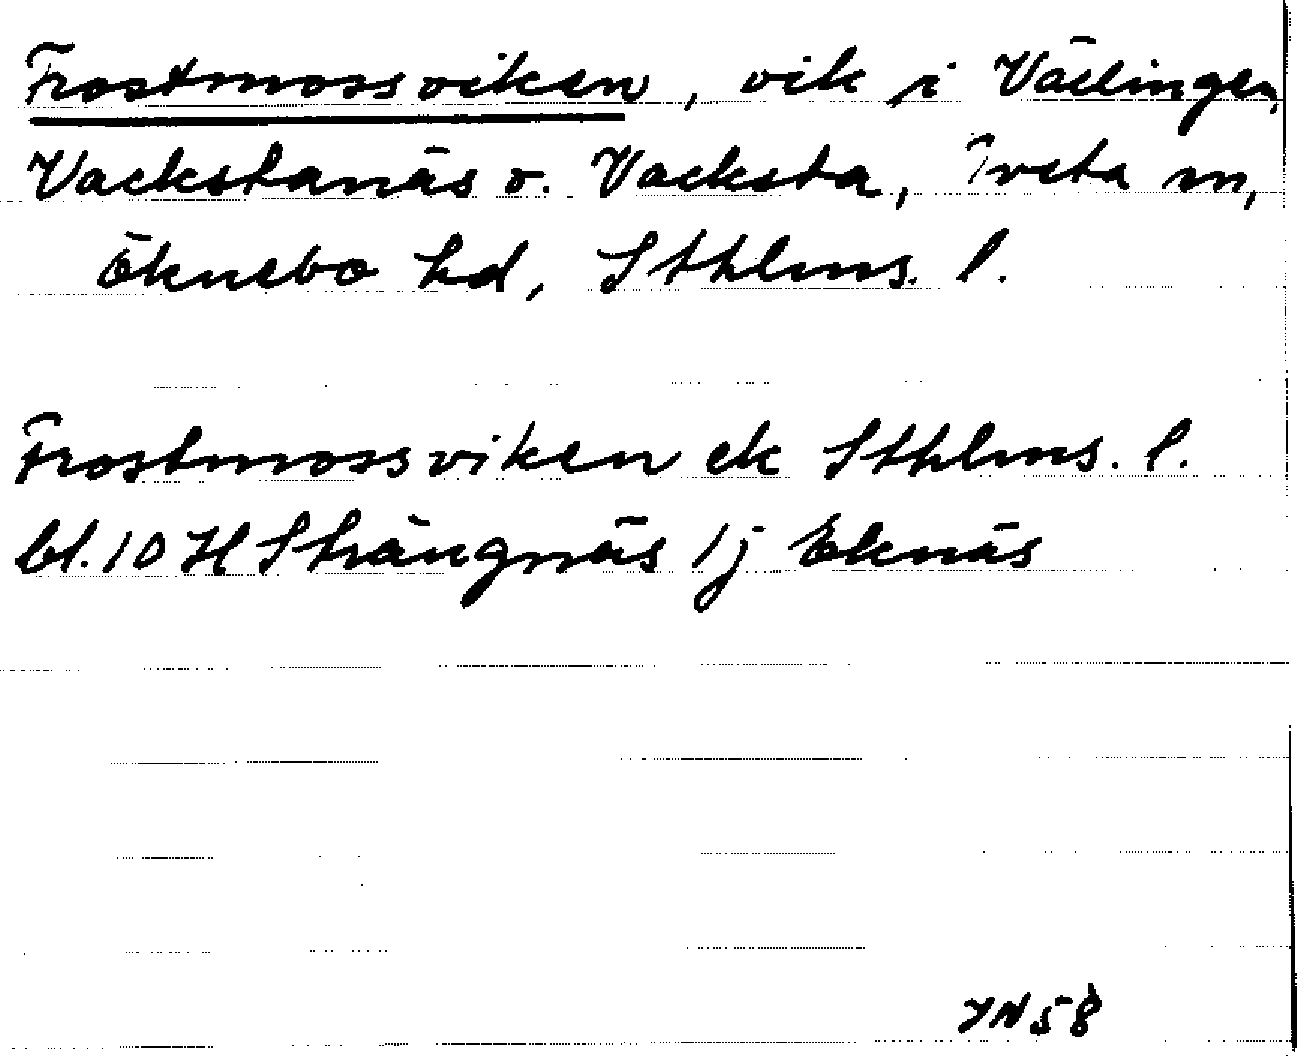 Frostmossviken, vik i Vällingen,
Vackstanäs o. Vacksta, Tveta sn,
Öknebo hd, Sthlms. l.
Frostmossviken ek Sthlms. l.
bl. 10 H Strängnäs 1j Eknäs
YN58